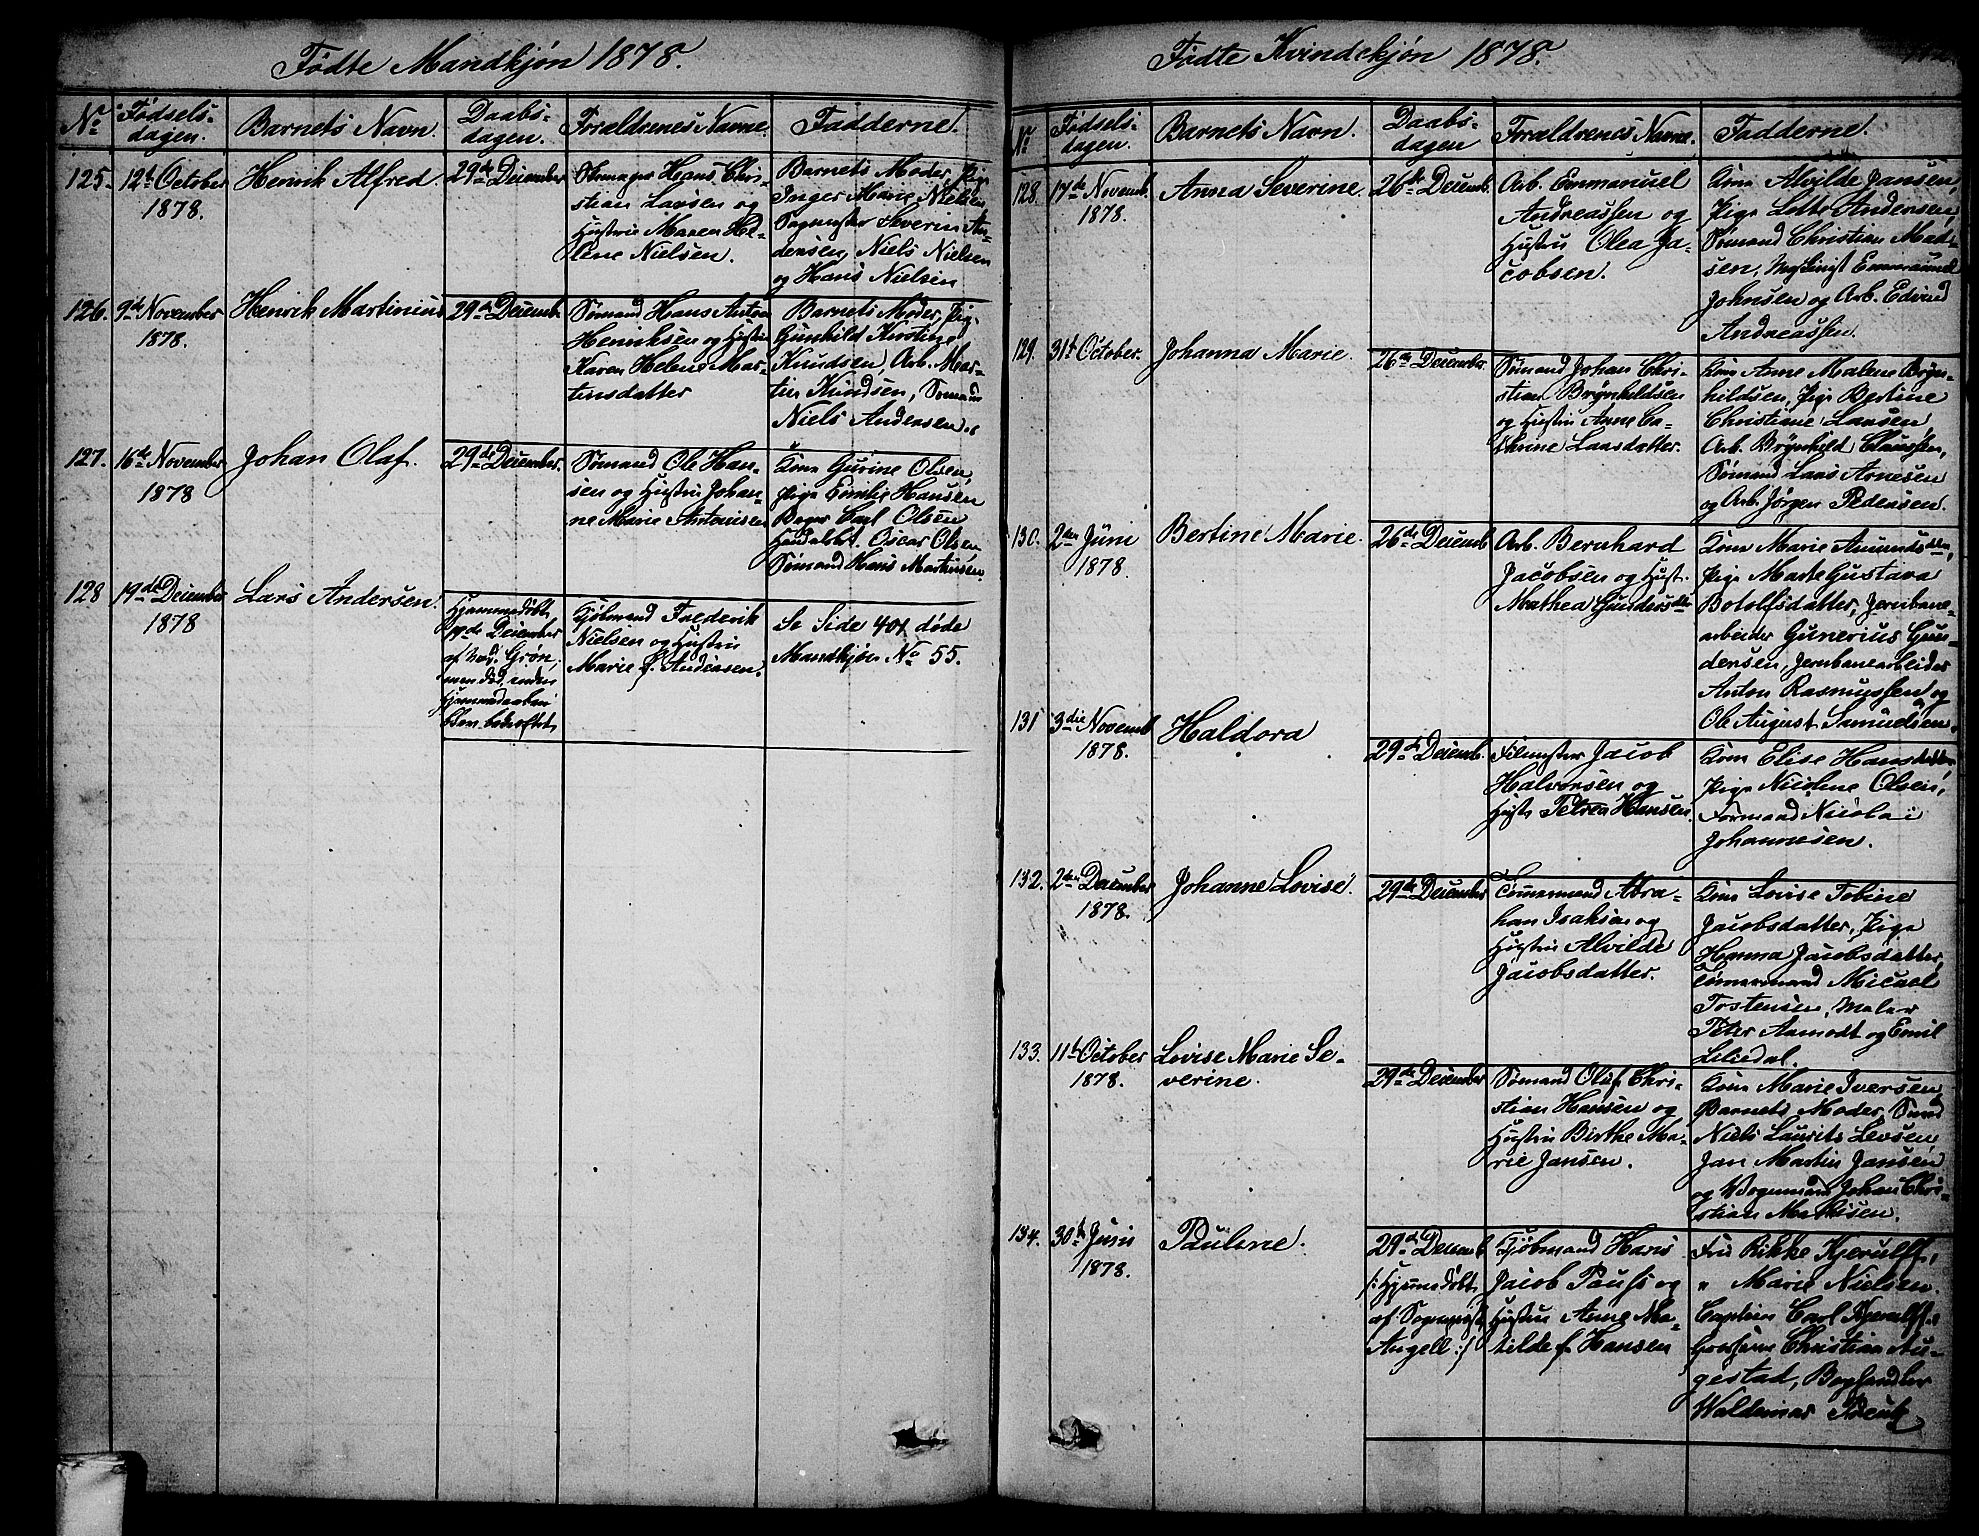 Fødte Mandkjøn 1878.
No
Fødsels-
dagen.
Barnets Navn.
Daabs-
dagen.
Forældrenes Navne.
Fadderne.
125.
12te October
1878.
Henrik Alfred.
29de December
Hans Chri-
stian Larsen og
Hustru Maren He-
lene Nielsen.
Barnets Moder, Pige
Inger Marie Nielsen,
Severin An-
dersen, Niels Nielsen
og Hans Nielsen
126.
9de November
1878.
Henrik Martinius
29de Decemb.
Sømand Hans Anton
Henriksen og Hustru
Karen Helene Mar-
tinsdatter
Barnets Moder, Pig.
Gunhild Kirstine
Knudsen, Arb. Mar-
tin Knudsen, Sømand
Niels Andersen.
127.
16de November
1878
Johan Olaf.
29de December.
Sømand Ole Han-
sen og Hustru Johan-
ne Marie Antonisen
Kone Gurine Olsen,
Pige Emilie Hansen
Bager Carl Olsen
Oscar Olsen
Sømand Hans Martinsen.
128
19de December
1878
Lars Andersen.
Hjemmedøbt
december
af Grøn,
men død, inden
Hjemmedaaben
blev bekræftet,
Kjøbmand Frederik
Nielsen og Hustru
Marie f. Andersen.
Se Side 401 døde
Mandkjøn No 55.
Fødte Kvindekjøn 1878.
No
Fødsels-
dagen.
Barnets Navn.
Daabs-
dagen
Forældrenes Navne.
Fadderne.
128.
17de Novemb.
1878.
Anna Severine.
26de Decemb.
Arb. Emmanuel
Andreassen og
Hustru Olea Ja-
cobsen.
Kone Alvilde Jansen,
Pige Lotte Andersen,
Sømand Christian Mad-
sen, Emmanuel
Johnsen og Arb. Edvard
Andreassen.
129.
31te October.
Johanna Marie.
26de December
Sømand Johan Chri-
stian Brynhildsen
og Hustru Anne Ca-
thrine Larsdatter.
Kone Anne Malene Bryn-
hildsen, Pige Bertine
Christiane Larsen,
Arb. Brynhild Claussen,
Sømand Lars Arnesen
og Arb. Jørgen Pedersen.
130.
2den Juni
1878.
Bertine Marie.
26de Decemb.
Arb. Bernhard
Jacobsen og Hust.
Mathea Gundersdtr
Kone Marie Amundsdtter,
Pige Marte Gustava
Botolfsdatter, Jernbane-
arbeider Gunerius Gun-
dersen, Jernbanearbeider
Anton Rasmussen og
Ole August Samuelsen.
131
3die Novemb.
1878.
Haldora
29de Decemb.
Jacob
Halvorsen og
Hustr. Petrea Hansen.
Kone Elise Hansdatter,
Pige Nicoline Olsen,
Formand Nicolai
Johannesen.
132.
2den December
1878.
Johanne Lovise.
29de December
Tømmermand Abra-
ham Isaksen og
Hustru Alvilde
Jacobsdatter.
Kone Lovise Tobine
Jacobsdatter, Pige
Hanna Jacobsdatter,
Tømmermand Micael
Tostensen, Maler
Peter Aamodt og Emil
Liliedal.
133.
11te October
1878.
Lovise Marie Se-
verine.
29de December
Sømand Olaf Chri-
stian Hansen og
Hustru Birthe Ma-
rie Jansen.
Kone Marie Iversen,
Barnets Moder, Sømd
Niels Laurits Levsen,
Jan Martin Jansen
og Vognmand Johan Chri-
stian Mathisen.
134.
30te Juni
1878.
Pauline.
29de Decemb.
/: Hjemmedøbt
af Sognepræst
Angell :/
Kjøbmand Hans
Jacob Paus og
Hustru Anne Ma-
tilde f. Hansen
Fru Rikke Kjerulff,
" Marie Nielsen.
Captein Carl Kjerulff,
Christian Au-
gestad, Boghandler
Waldemar